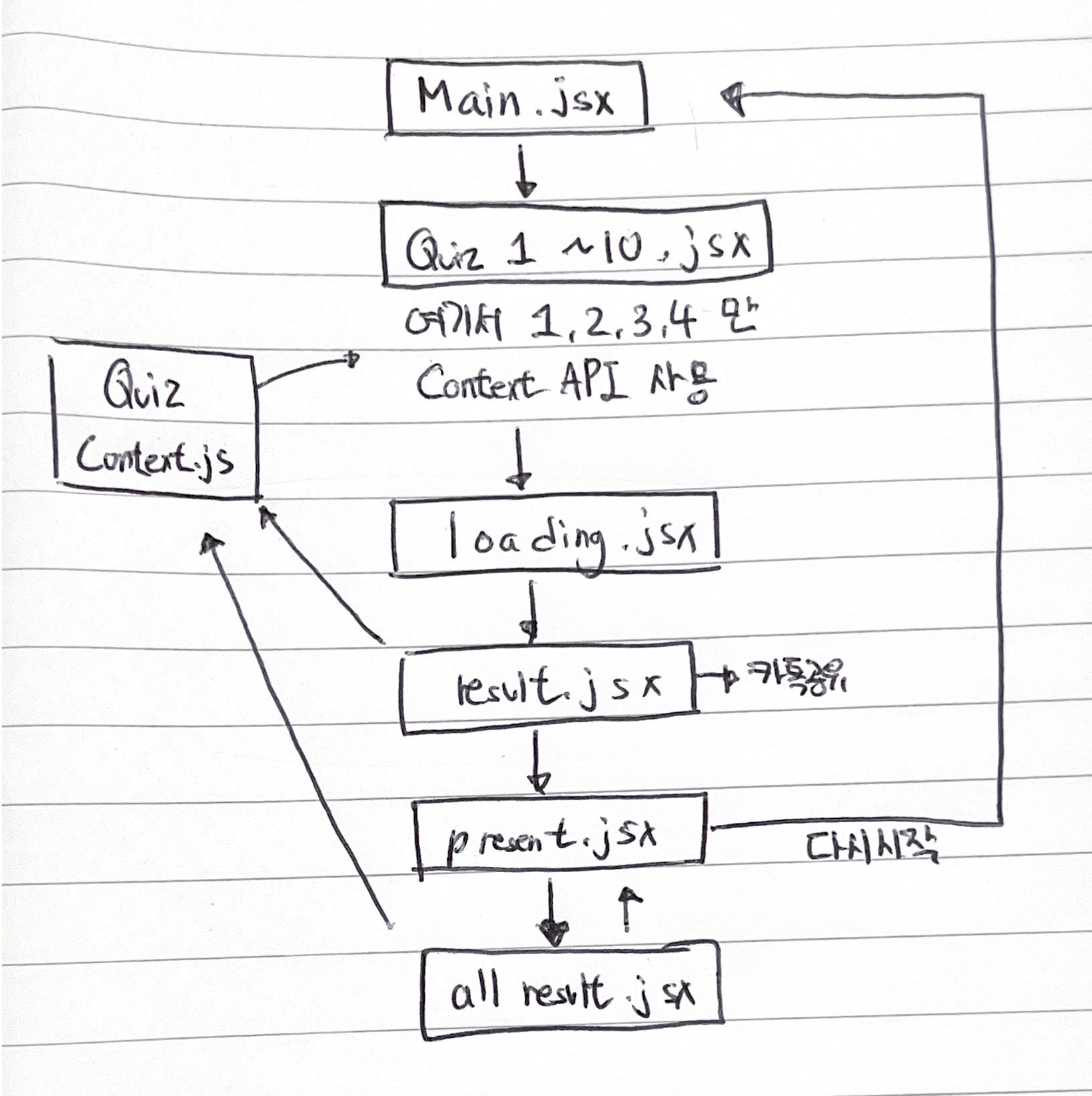 Main.jsx
Quiz 1 ~10.jsx
여기서 1,2,3,4 만
Context API 사용
Quiz
Context.js
loading.jsx
result.jsx
카톡공유
present.jsx
다시시작
all result.jsx